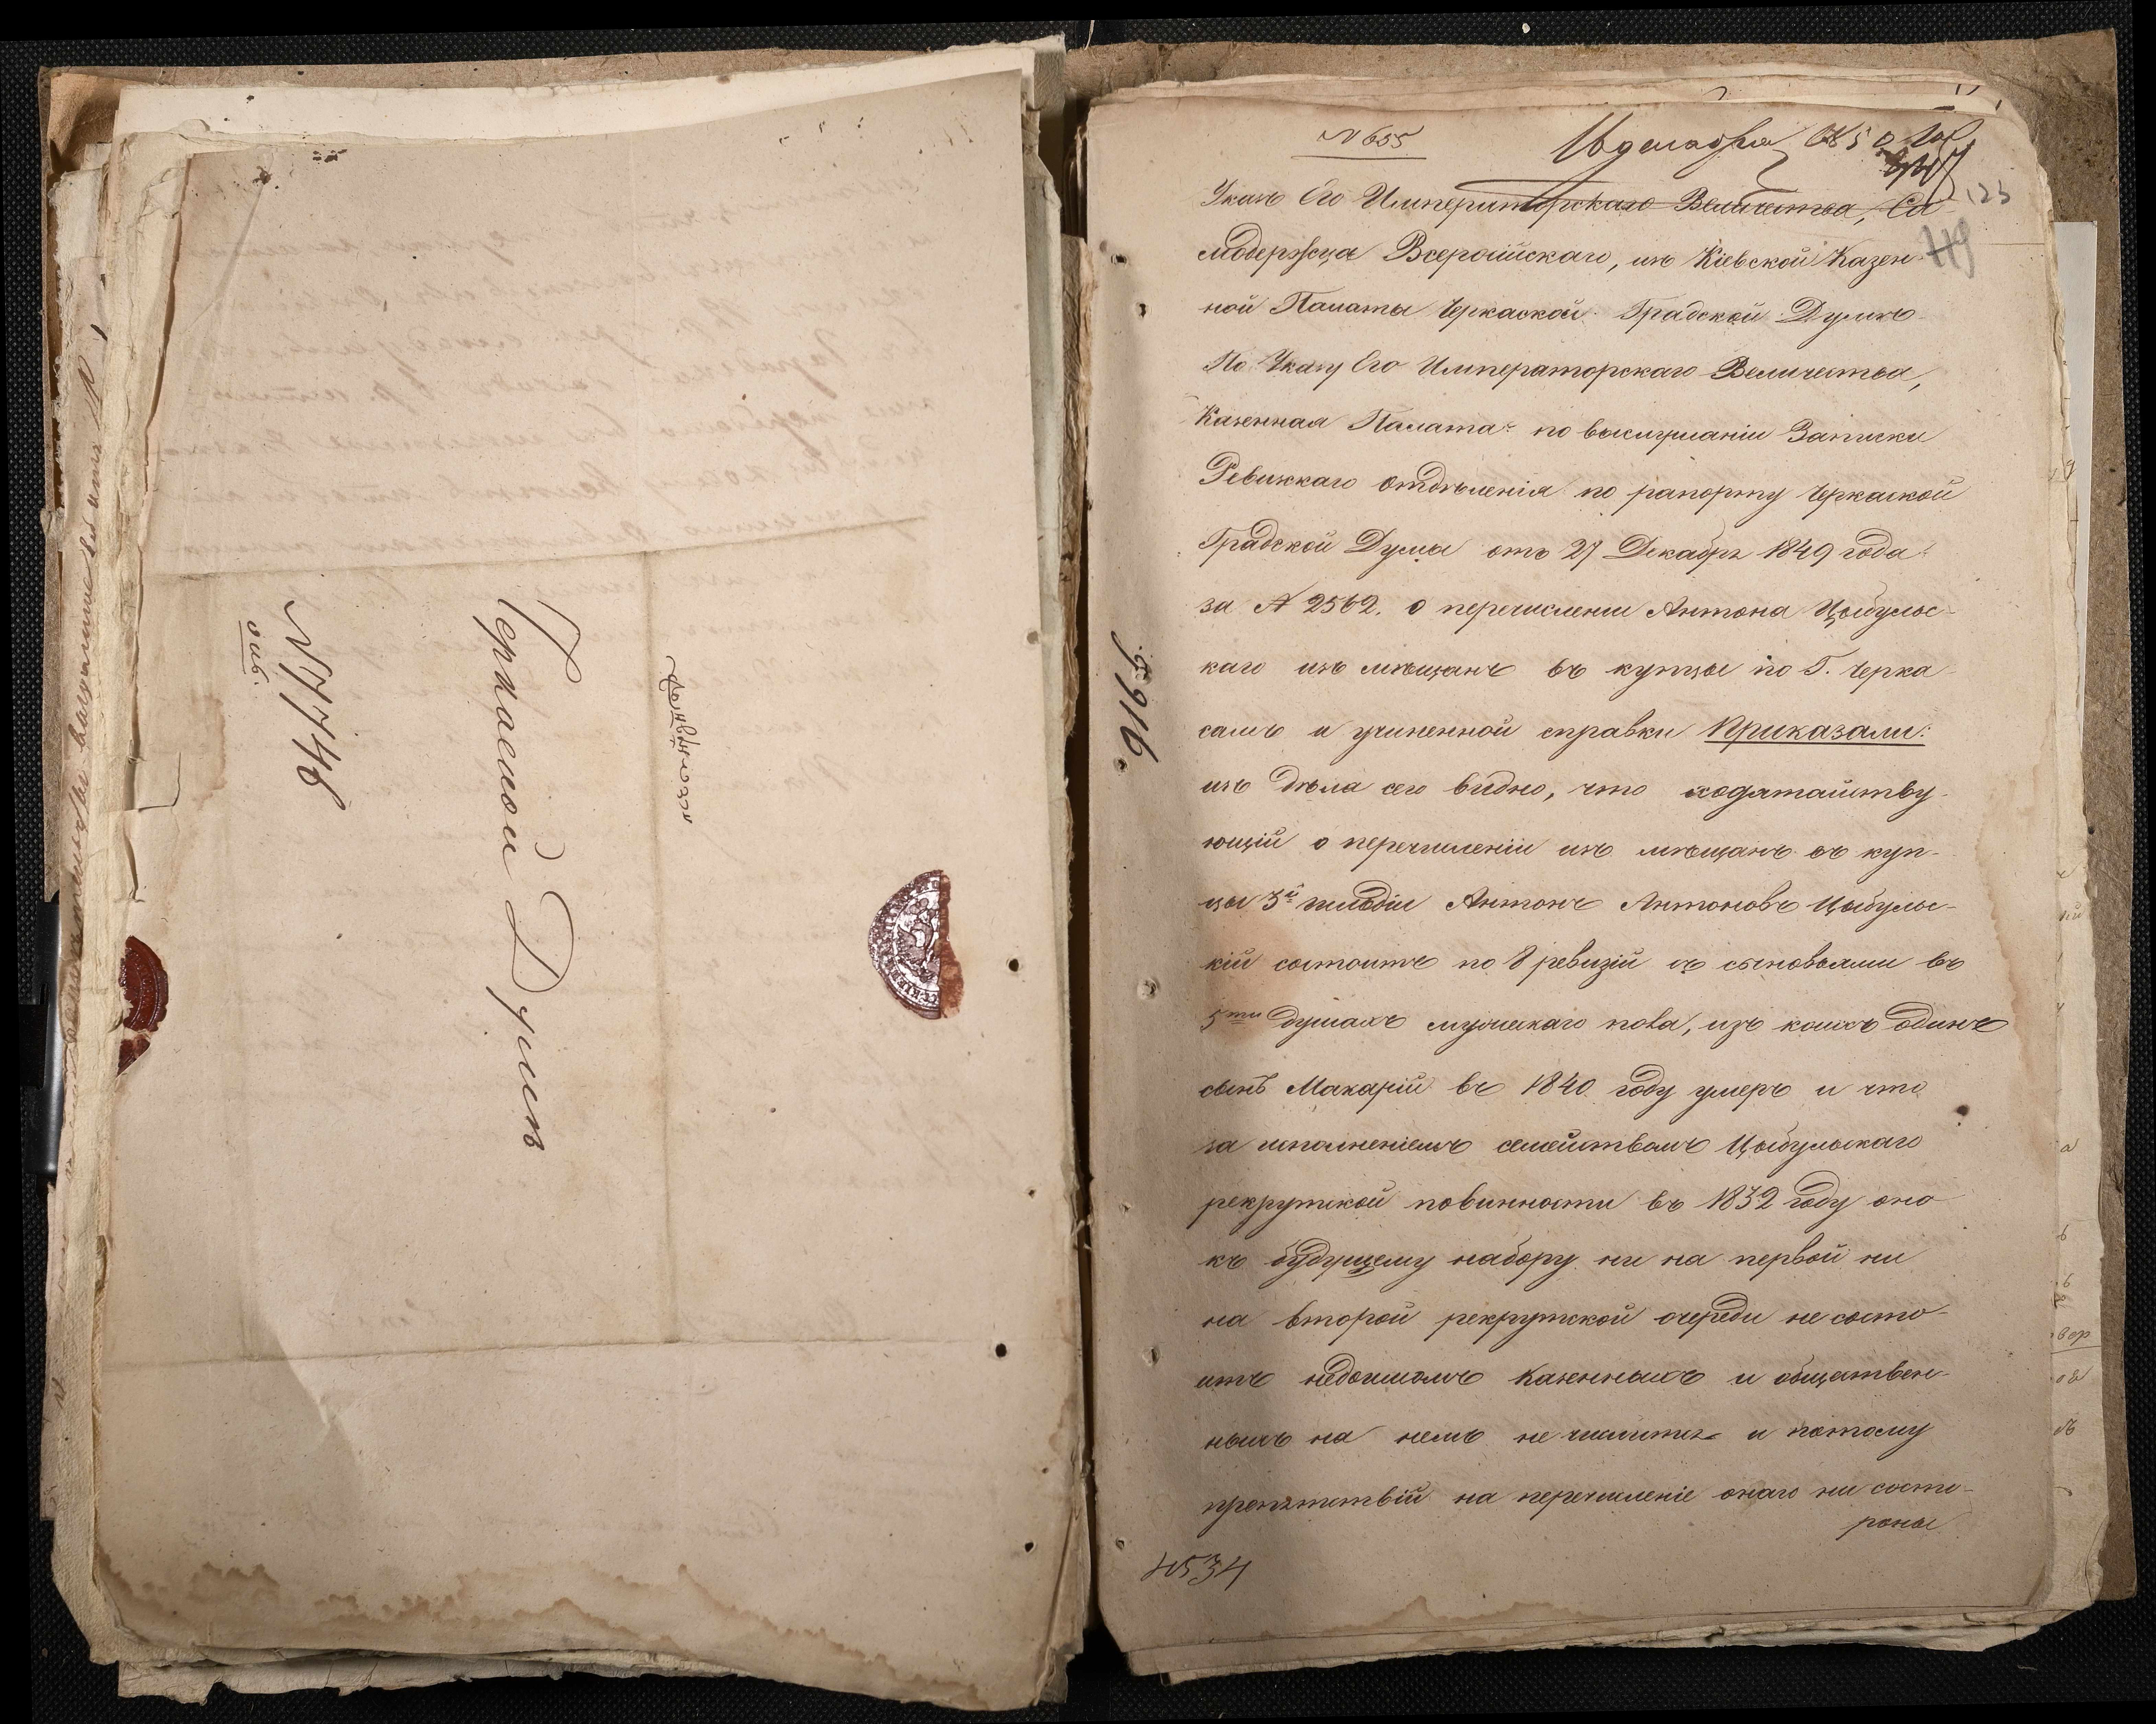 Черкаской Думѣ
№ 7748
№ 655
Указъ Его Императорскаго Величества, Са-
модержца Всероссійскаго, изъ Кіевской Казен-
ной Палаты Черкаской Градской Думѣ
По Указу Его Императорскаго Величества,
Казенная Палата по выслушаніи Записки
Ревижкаго отдѣленія по рапорту Черкаской
Градской Думы отъ 27 Декабря 1849 года
за № 2562. о перечисленіи Антона Цыбульс-
каго изъ мѣщанъ въ купцы по Г. Черка-
самъ и учиненной справки Приказали:
изъ дѣла сего видно, что ходатайству-
ющій о перечисленіи изъ мѣщанъ въ куп-
цы 3й гильдіи Антонъ Антоновъ Цыбульс-
кій состоитъ по 8 ревизіи съ сыновьями въ
5ти душахъ мужескаго пола, изъ коихъ одинъ
сынъ Макарій въ 1840 году умеръ и что
за исполненіемъ семействомъ Цыбульскаго
рекрутской повинности въ 1832 году оно
къ будущему набору ни на первой ни
на второй рекрутской очереди не состо-
итъ недоимокъ казенныхъ и обществен-
ныхъ на немъ не числится и потому
препятствій на перечисленіе онаго ни состо-
роны
5916
4534
123